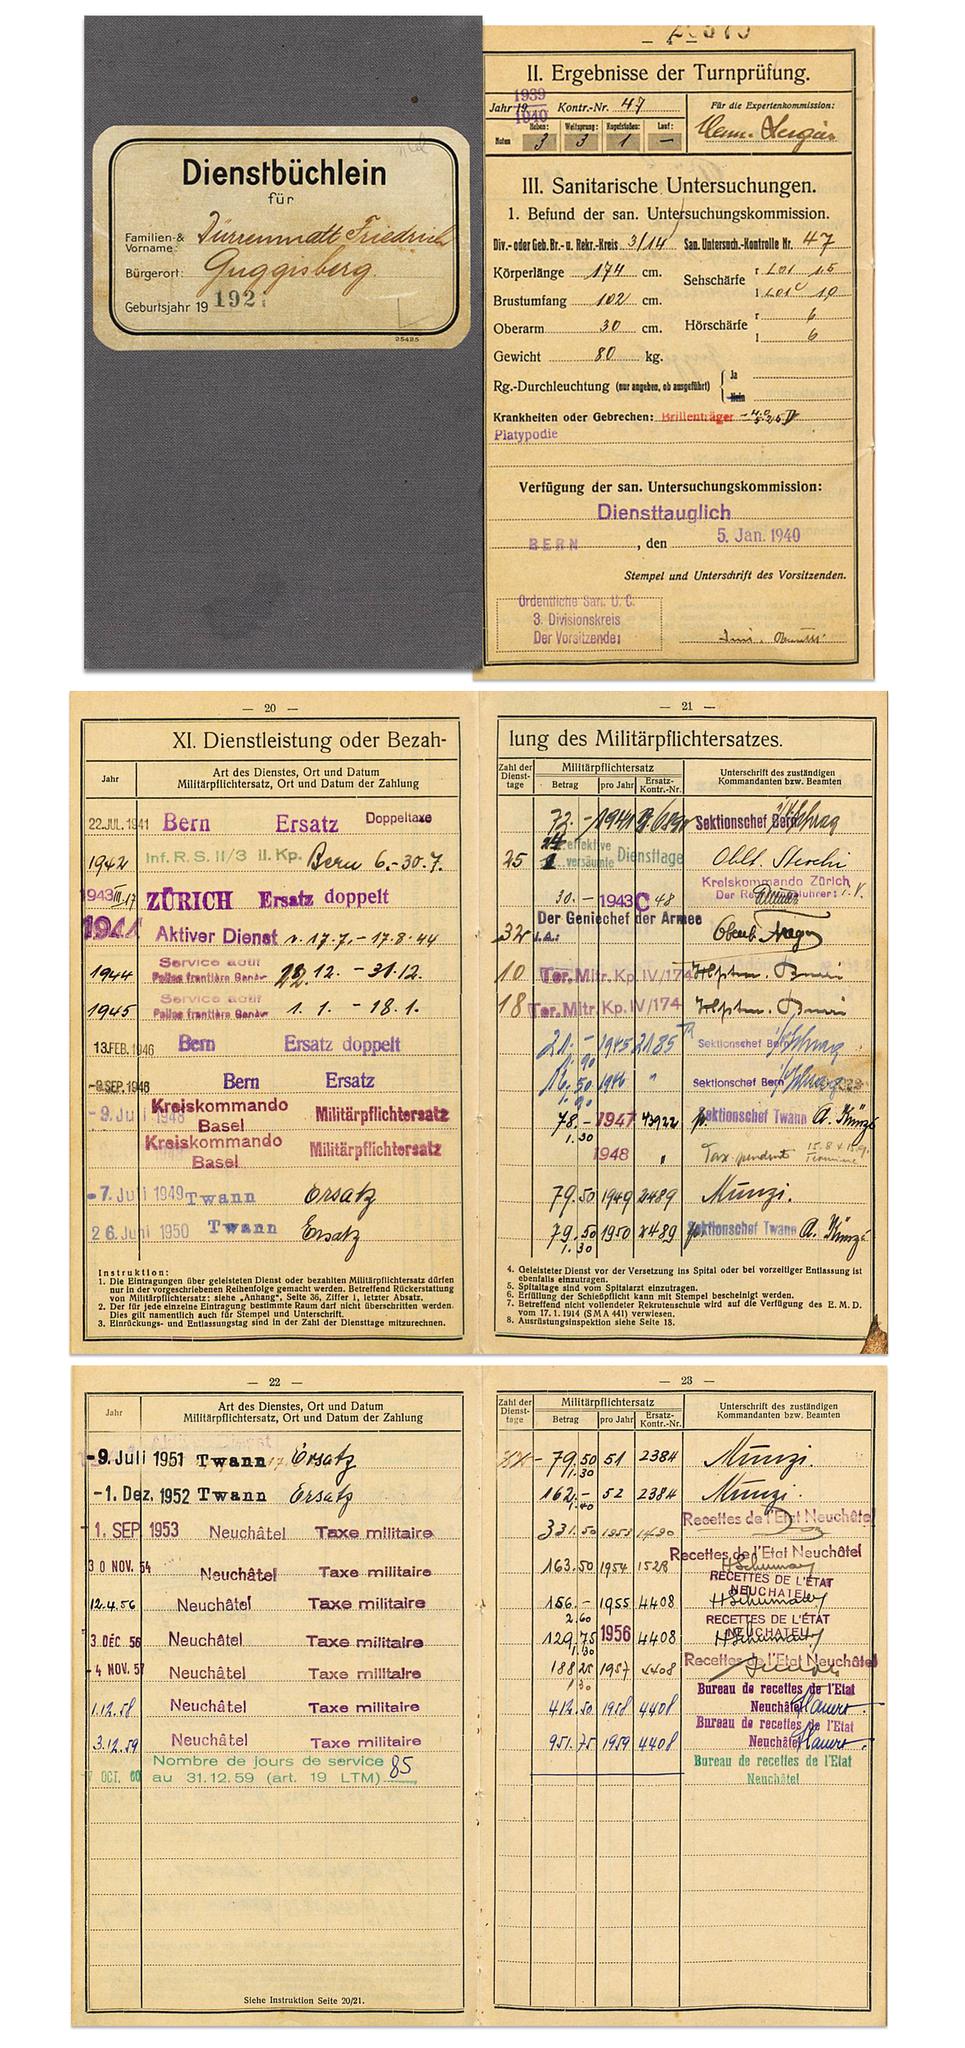 Dienstbüchlein
für
Familien- & Vorname: Dürrenmatt Friedrich
Bürgerort: Guggisberg
Geburtsjahr 19 192
25425
II. Ergebnisse der Turnprüfung.
Jahr 19 1939 1940 Kontr.-Nr. 47 Für die Expertenkommission:
Heben: Weitsprung: Kugelstoßen: Lauf:
Noten 3 3 1 —
III. Sanitarische Untersuchungen.
1. Befund der san. Untersuchungskommission.
Div.- oder Geb. Br.- u. Rekr.-Kreis 3/14 San. Untersuch.-Kontrolle Nr. 47
Körperlänge 174 cm.
Sehschärfe r 1.5
l 1.0
Brustumfang 102 cm.
Oberarm 30 cm.
Hörschärfe r 6
l 6
Gewicht 80 kg.
Rg.-Durchleuchtung (nur angeben, ob ausgeführt) Ja
Nein
Krankheiten oder Gebrechen: Brillenträger
Platypodie
Verfügung der san. Untersuchungskommission:
Diensttauglich
BERN, den 5. Jan. 1940
Stempel und Unterschrift des Vorsitzenden.
Ordentliche San. U. C.
3. Divisionskreis
Der Vorsitzende:
— 20 —
XI. Dienstleistung oder Bezah-
Jahr
Art des Dienstes, Ort und Datum
Militärpflichtersatz, Ort und Datum der Zahlung
22. JUL. 1941 Bern Ersatz Doppeltaxe
1942 Inf. R. S. II/3 II. Kp. Bern 6.-30.7.
1943 III. 17 ZÜRICH Ersatz doppelt
1944 Aktiver Dienst v. 17.7. - 17.8.44
1944 Service actif 12. - 31.12.
1945 Service actif 1.1. - 18.1.
13. FEB. 1946 Bern Ersatz doppelt
-9. SEP. 1946 Bern Ersatz
-9. Juli 1948 Kreiskommando Basel Militärpflichtersatz
Kreiskommando Basel Militärpflichtersatz
-7. Juli 1949 Twann Ersatz
26. Juni 1950 Twann Ersatz
Instruktion:
1. Die Eintragungen über geleisteten Dienst oder bezahlten Militärpflichtersatz dürfen
nur in der vorgeschriebenen Reihenfolge gemacht werden. Betreffend Rückerstattung
von Militärpflichtersatz: siehe „Anhang", Seite 36, Ziffer 1, letzter Absatz.
2. Der für jede einzelne Eintragung bestimmte Raum darf nicht überschritten werden.
Dies gilt namentlich auch für Stempel und Unterschrift.
3. Einrückungs- und Entlassungstag sind in der Zahl der Diensttage mitzurechnen.
— 21 —
lung des Militärpflichtersatzes.
Zahl der Dienst-tage
Militärpflichtersatz
Betrag pro Jahr Ersatz-Kontr.-Nr.
Unterschrift des zuständigen
Kommandanten bzw. Beamten
72.- 1941 Sektionschef Bern
25 effektive versäumte Diensttage Oblt. Sterchi
30.- 1943 C 48 Kreiskommando Zürich
32 Der Geniechef der Armee
i.A.:
10 Ter. Mitr. Kp. IV/174 Hptm.
18 Ter. Mitr. Kp. IV/174 Hptm.
21.- 1.90 1945 2185 Sektionschef Bern
16.50 1.90 1946 " Sektionschef Bern
78.- 1.30 1947 43922 Sektionschef Twann
1948 " Tax. pendent
79.50 1949 2489 Munzi.
79.50 1.30 1950 2489 Sektionschef Twann
4. Geleisteter Dienst vor der Versetzung ins Spital oder bei vorzeitiger Entlassung ist
ebenfalls einzutragen.
5. Spitaltage sind vom Spitalarzt einzutragen.
6. Erfüllung der Schießpflicht kann mit Stempel bescheinigt werden.
7. Betreffend nicht vollendeter Rekrutenschule wird auf die Verfügung des E. M. D.
vom 17. 1. 1914 (SMA 441) verwiesen.
8. Ausrüstungsinspektion siehe Seite 18.
— 22 —
Jahr
Art des Dienstes, Ort und Datum
Militärpflichtersatz, Ort und Datum der Zahlung
-9. Juli 1951 Twann Ersatz
-1. Dez. 1952 Twann Ersatz
1. SEP. 1953 Neuchâtel Taxe militaire
30 NOV. 54 Neuchâtel Taxe militaire
12.4.56 Neuchâtel Taxe militaire
3. DÉC 56 Neuchâtel Taxe militaire
-4 NOV. 57 Neuchâtel Taxe militaire
1.12.58 Neuchâtel Taxe militaire
3.12.59 Neuchâtel Taxe militaire
OCT. 60 Nombre de jours de service
au 31.12.59 (art. 19 LTM) 85
Siehe Instruktion Seite 20/21.
— 23 —
Zahl der Dienst-tage
Militärpflichtersatz
Betrag pro Jahr Ersatz-Kontr.-Nr.
Unterschrift des zuständigen
Kommandanten bzw. Beamten
79.50 1.30 51 2384 Munzi.
162.- 1.40 52 2384 Munzi.
331.50 1953 1490 Recettes de l'Etat Neuchâtel
163.50 1954 1528 Recettes de l'Etat Neuchâtel
156.- 2.60 1955 4408 RECETTES DE L'ÉTAT NEUCHATEL
129.75 1.30 1956 4408 RECETTES DE L'ÉTAT NEUCHATEL
188.25 1.30 1957 4408 Recettes de l'Etat Neuchâtel
412.50 1958 4408 Bureau de recettes de l'Etat Neuchâtel
951.75 1959 4408 Bureau de recettes de l'Etat Neuchâtel
Bureau de recettes de l'Etat
Neuchâtel